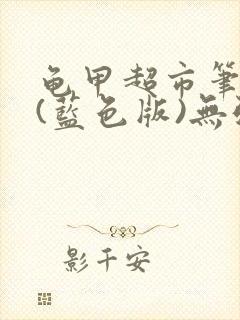 龟甲超市筆
(藍色版)無
影千安